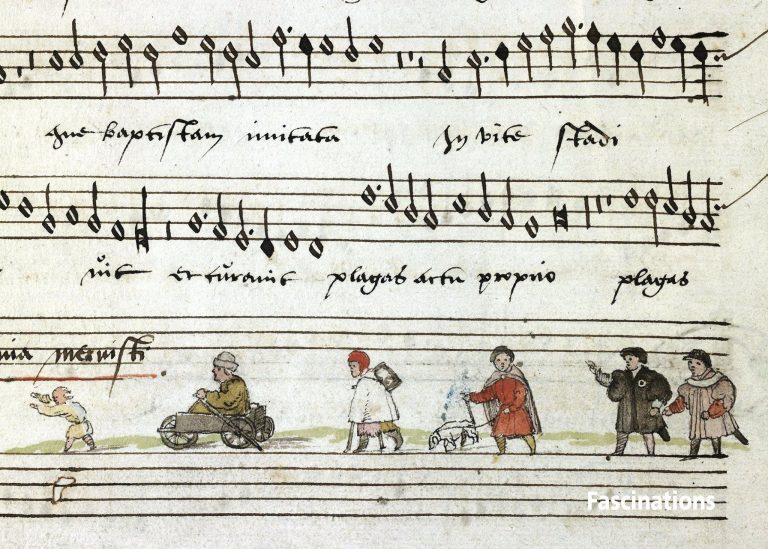 que baptistam imitata In vite stadi
vit et curavit plagas actu proprio plagas
meruisti
Fascinations